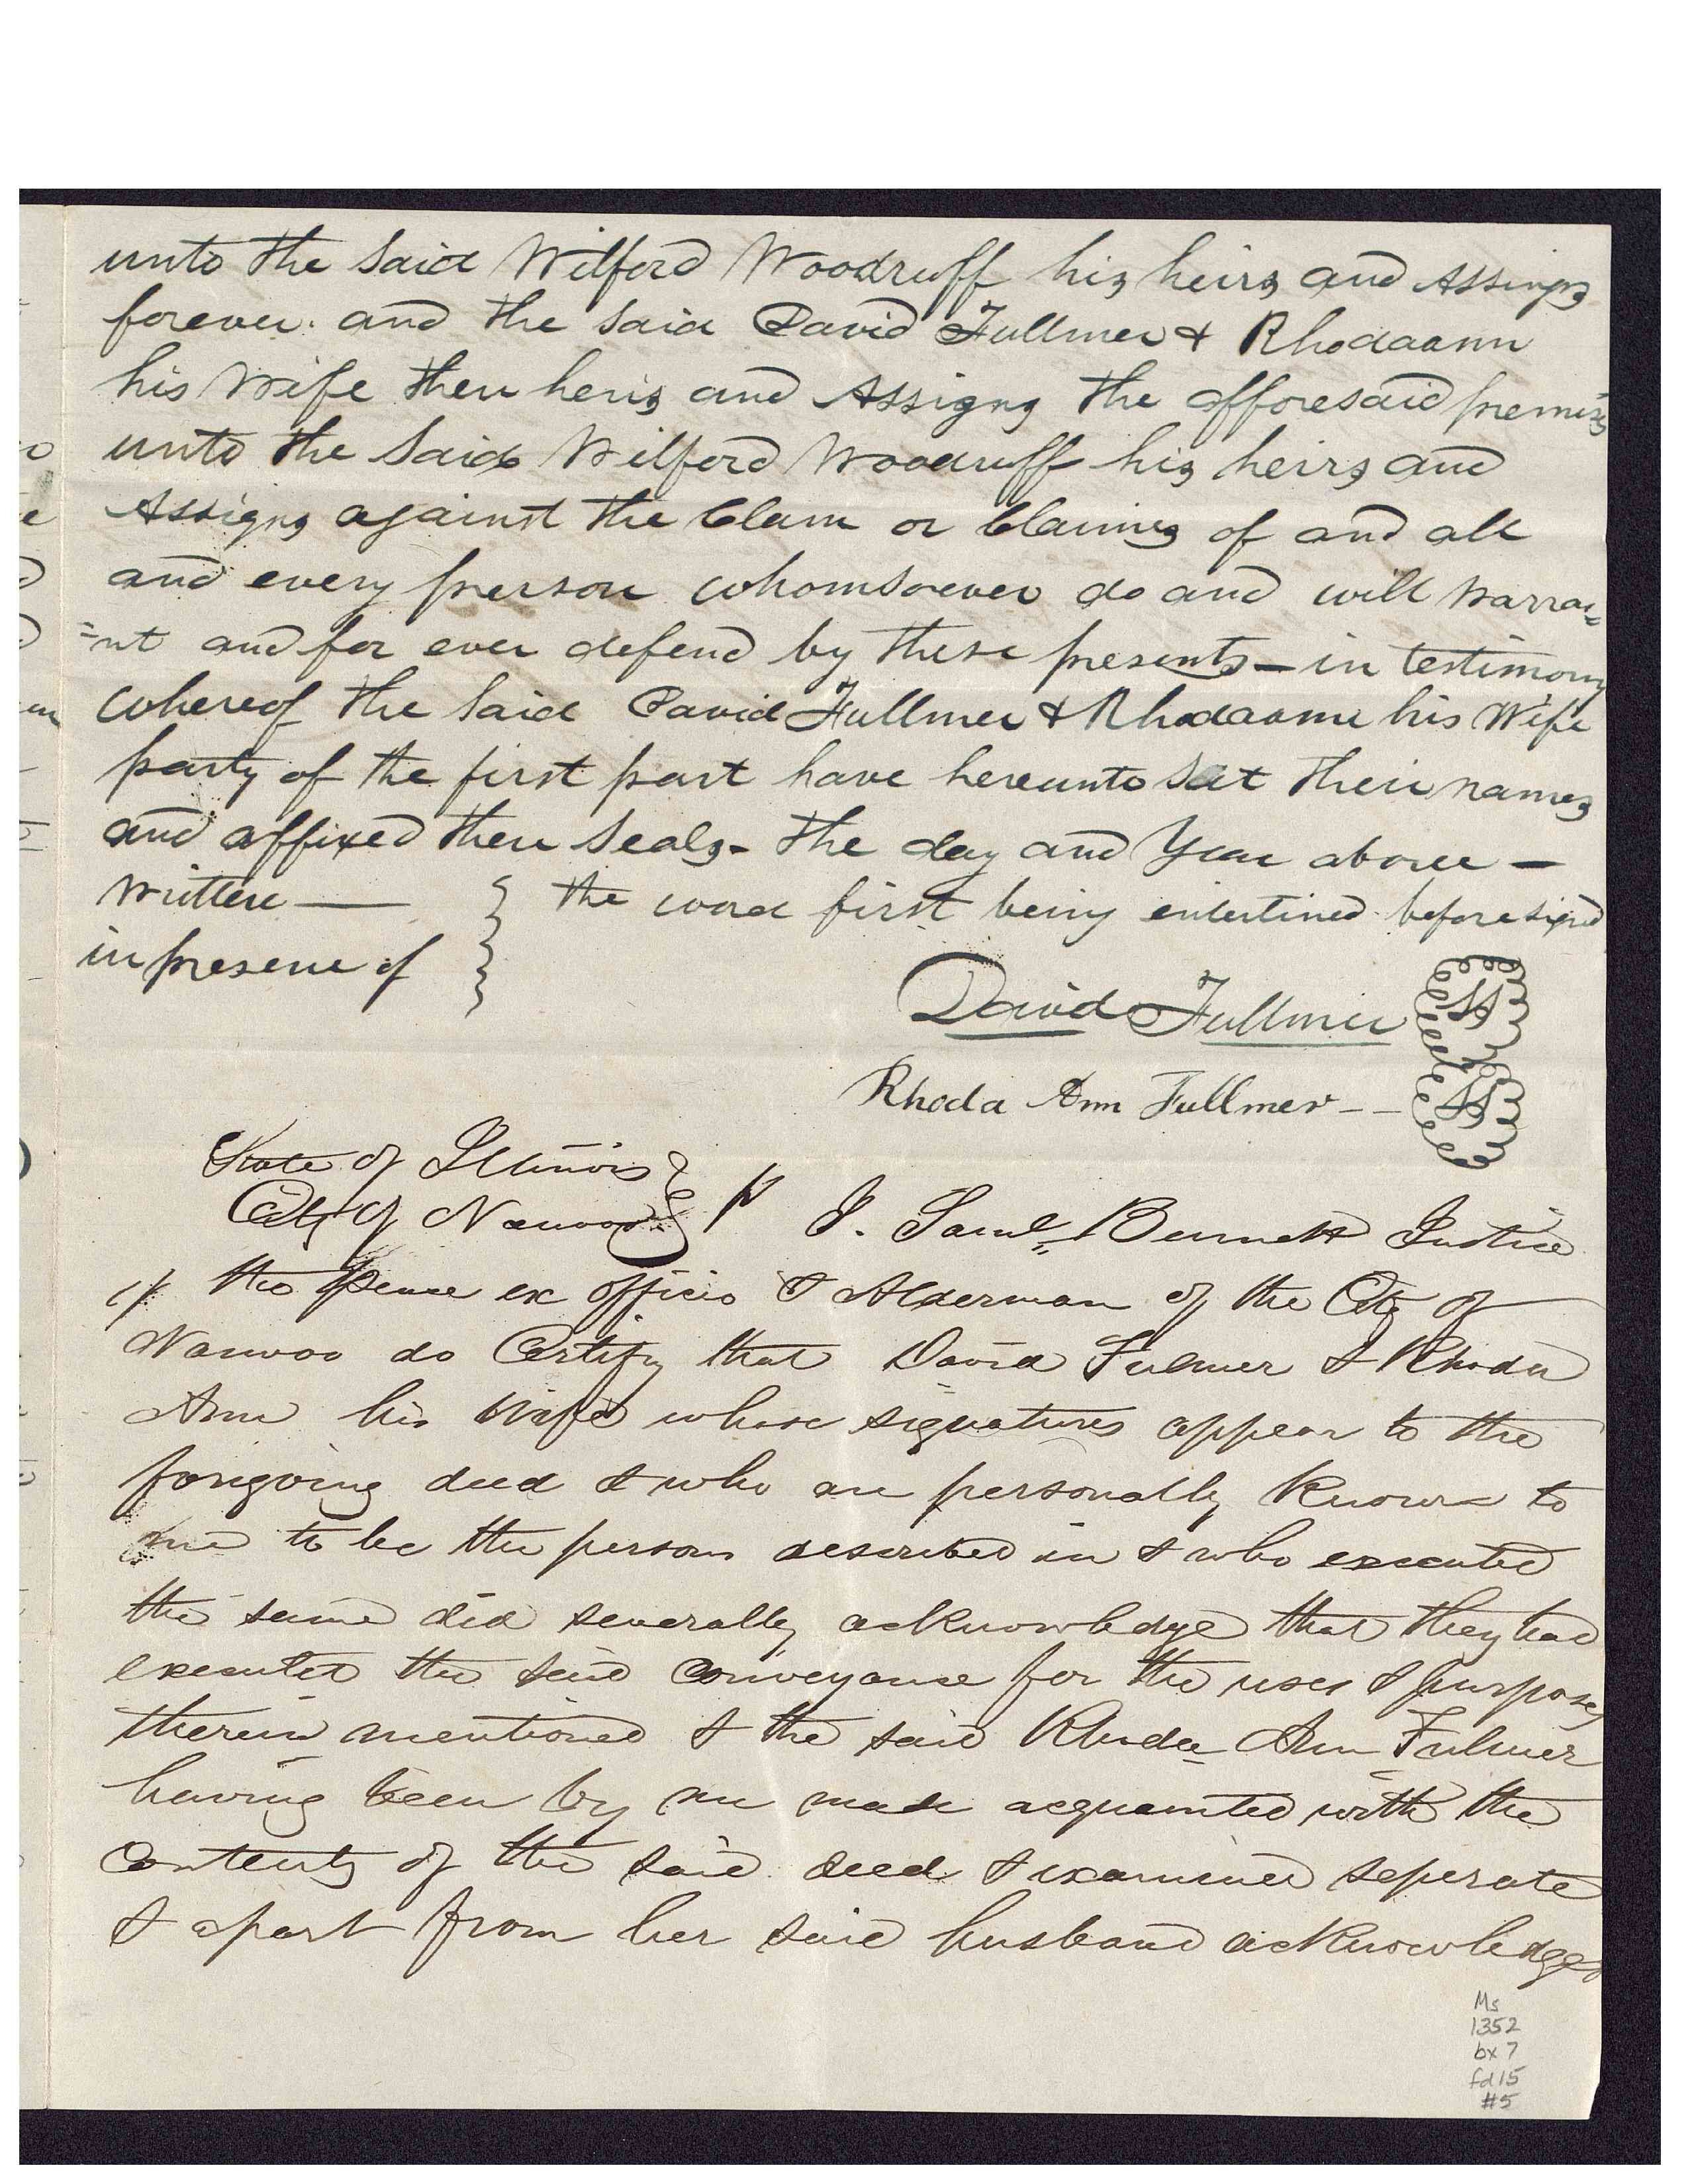 unto the Said Wilford Woodruff his heirs and Assings
forever. and the Said David Fullmer & Rhodaann
his Wife then heris and Assigns the afforesaid premises
unto the Said Wilford Woodruff his heirs and
Assigns against the Clam or Claims of and all
and every person whomsoever do and will Warra=
=nt and for ever defend by these presents — in testimony
whereof the Said David Fullmer & Rhodaann his Wife
party of the first part have hereunto Set their names
and affixed their Seals - the day and Year above —
Written —
the word first being enterlined before signed
in presene of
David Fullmer SS
Rhoda Ann Fullmer -- SS
State of Illinois
City of Nauvoo
I. Saml Bennett Justice
of the Peace ex officio & Alderman of the City of
Nauvoo do Certify that David Fulmer & Rhoda
Ann his Wife whose signatures appear to the
foregoing deed & who are personally Known to
me to be the persons described in & who executed
the same did severally acknowledge that they had
executed the said conveyance for the uses & purposes
therein mentioned & the said Rhoda Ann Fulmer
having been by me made acquainted with the
contents of the said deed & examined seperate
& apart from her said husband acknowledged
Ms
1352
bx 7
fd 15
#5